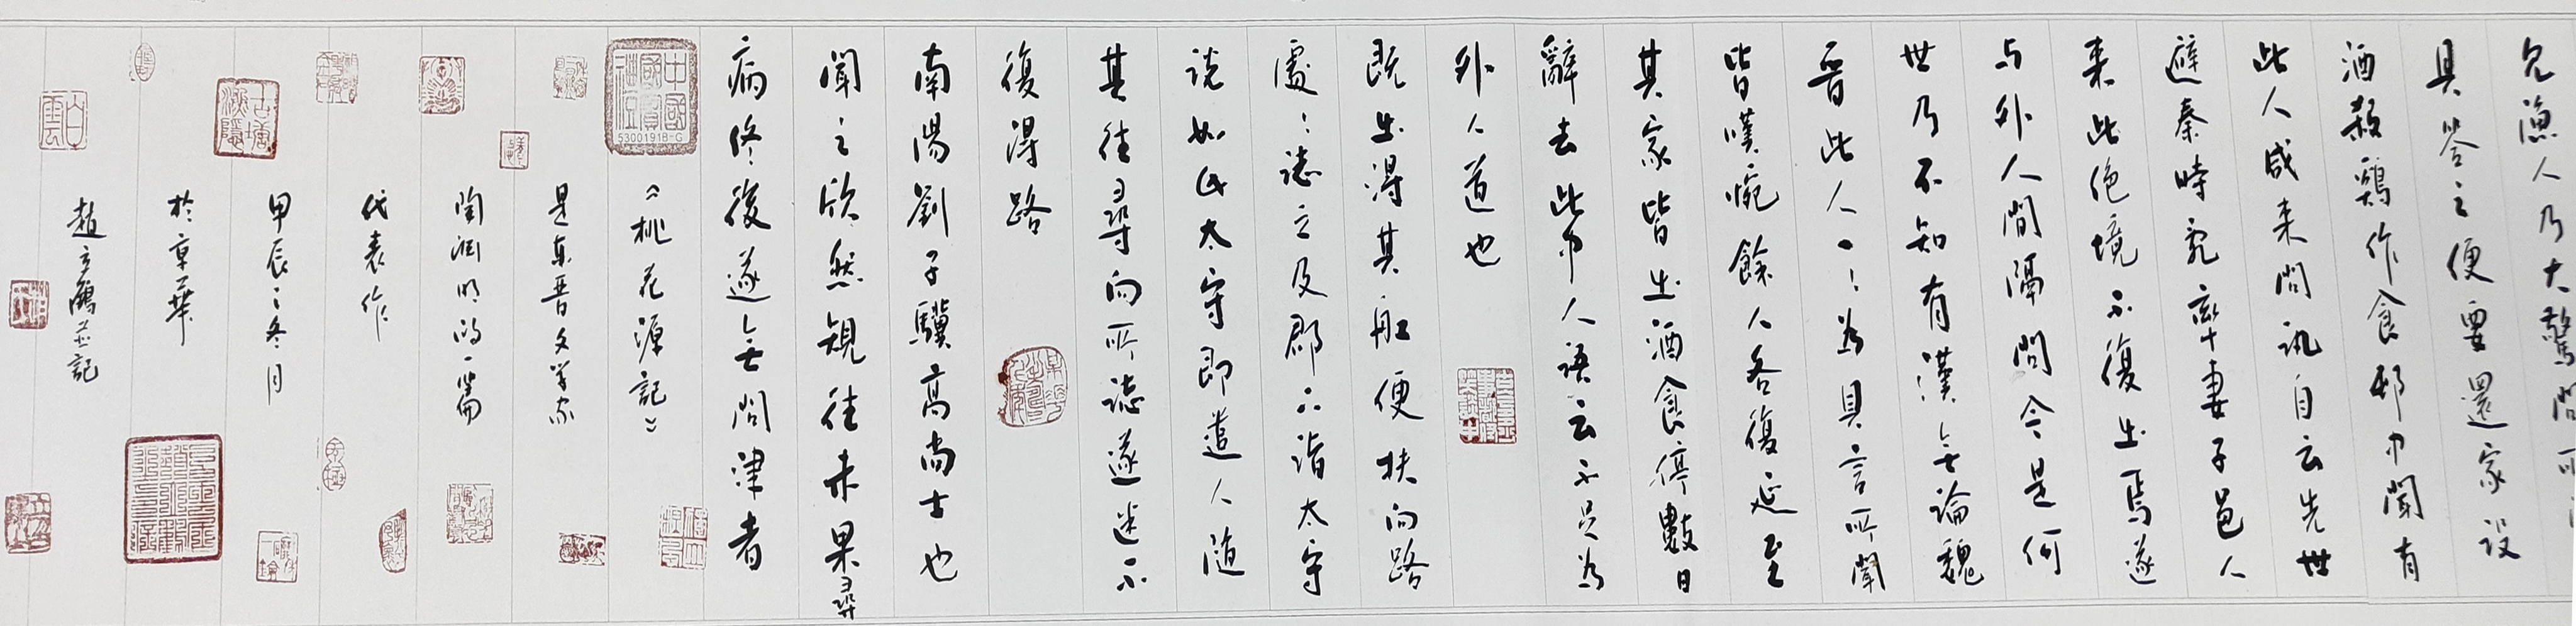 見漁人乃大驚問
具答之便要還家設
酒殺鷄作食邨中聞有
此人咸来問訊自云先世
避秦時乱率妻子邑人
来此绝境不復出焉遂
与外人間隔問今是何
世乃不知有漢無論魏
晋此人一一為具言所聞
皆嘆惋餘人各復延至
其家皆出酒食停數日
辭去此中人語云不足為
外人道也
既出得其船便扶向路
處處誌之及郡下詣太守
说如此太守即遣人随
其往尋向所誌遂迷不
復得路
南陽劉子驥高尚士也
聞之欣然規往未果尋
病终後遂無問津者
《桃花源記》
是东晋文学家
陶渊明的一篇
代表作
甲辰之冬月
於京華
趙雲鶴並記
中國
國寳
5300191B-G
古塘
漢隱
白雲